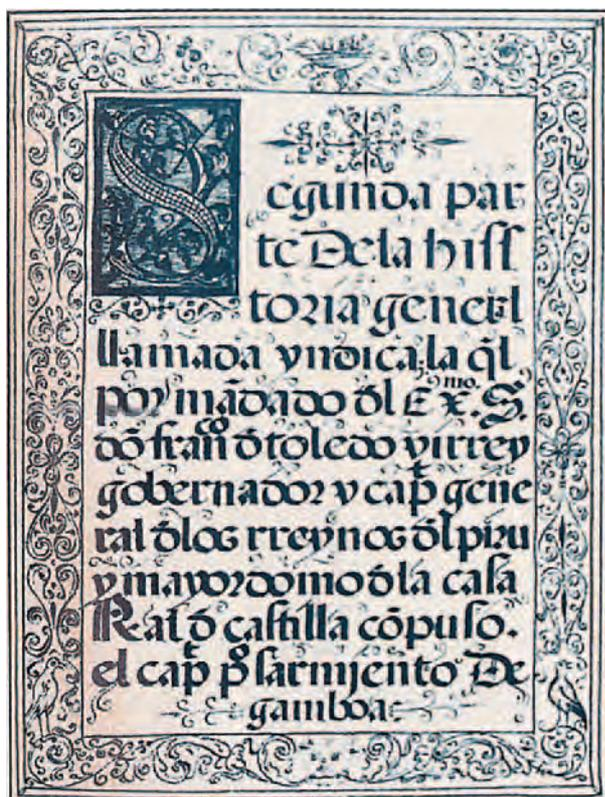 Segunda par
te De la hiſſ
toria general
llamada yndica, la q̃l
por mãdado đl Ex.mo S.
dõ fran.co đ toledo virrey
gobernador y cap.t gene
ral đ los rreynos đl piru
y mayordomo đ la caſa
Real đ caſtilla cõpuſo.
el cap.t p.o ſarmiento De
gamboa